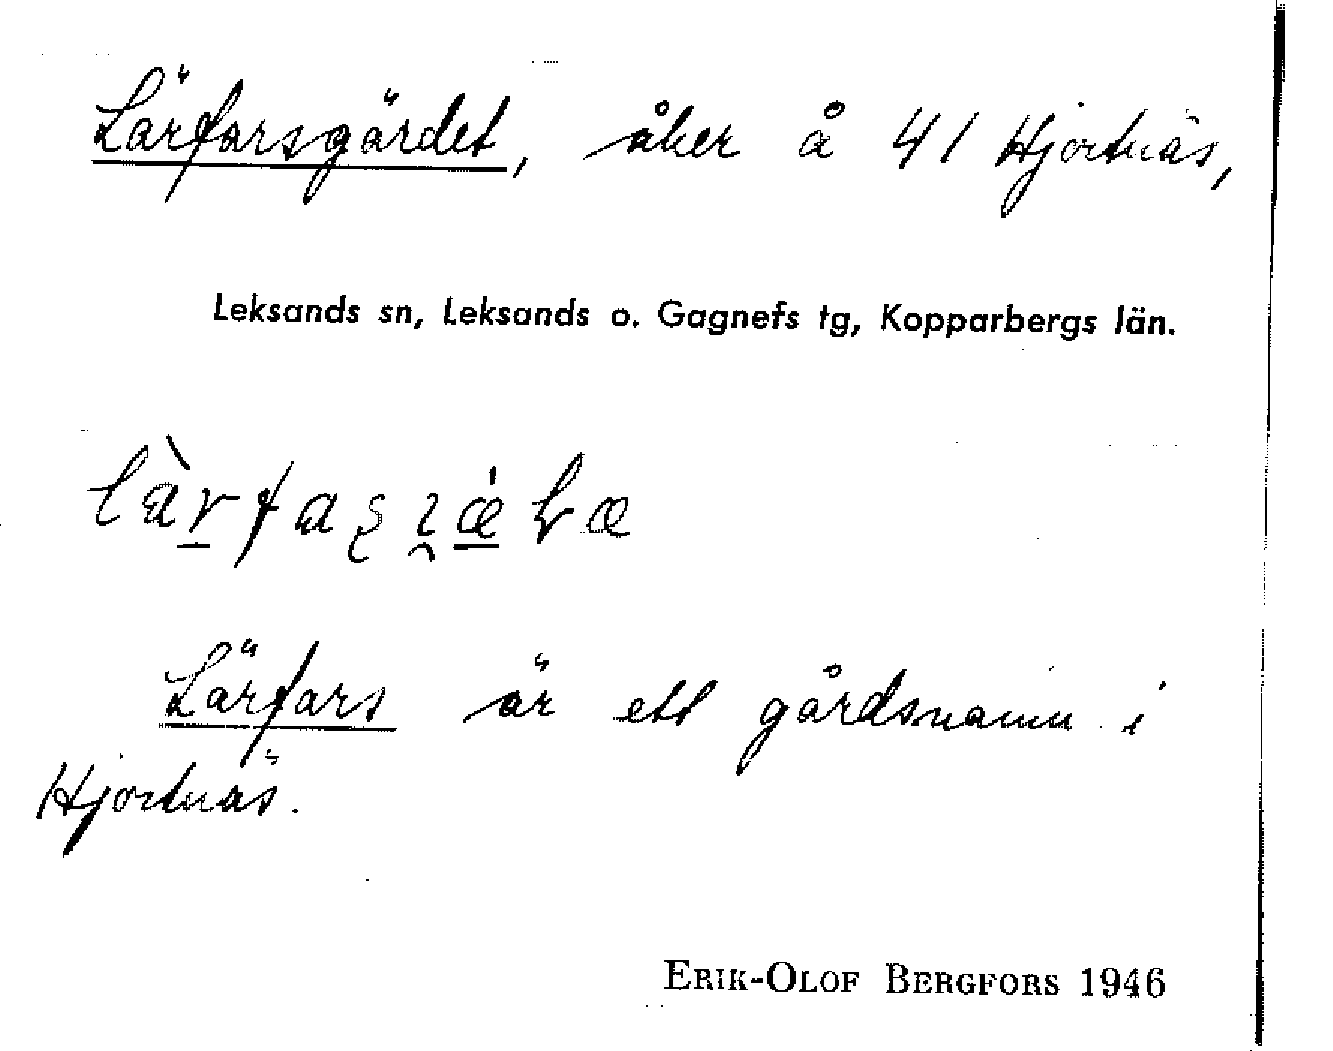 Lärfarsgärdet, åker å 41 Hjortnäs,
Leksands sn, Leksands o. Gagnefs tg, Kopparbergs län.
Lärfars är ett gårdsnamn i
Hjortnäs.
ERIK-OLOF BERGFORS 1946